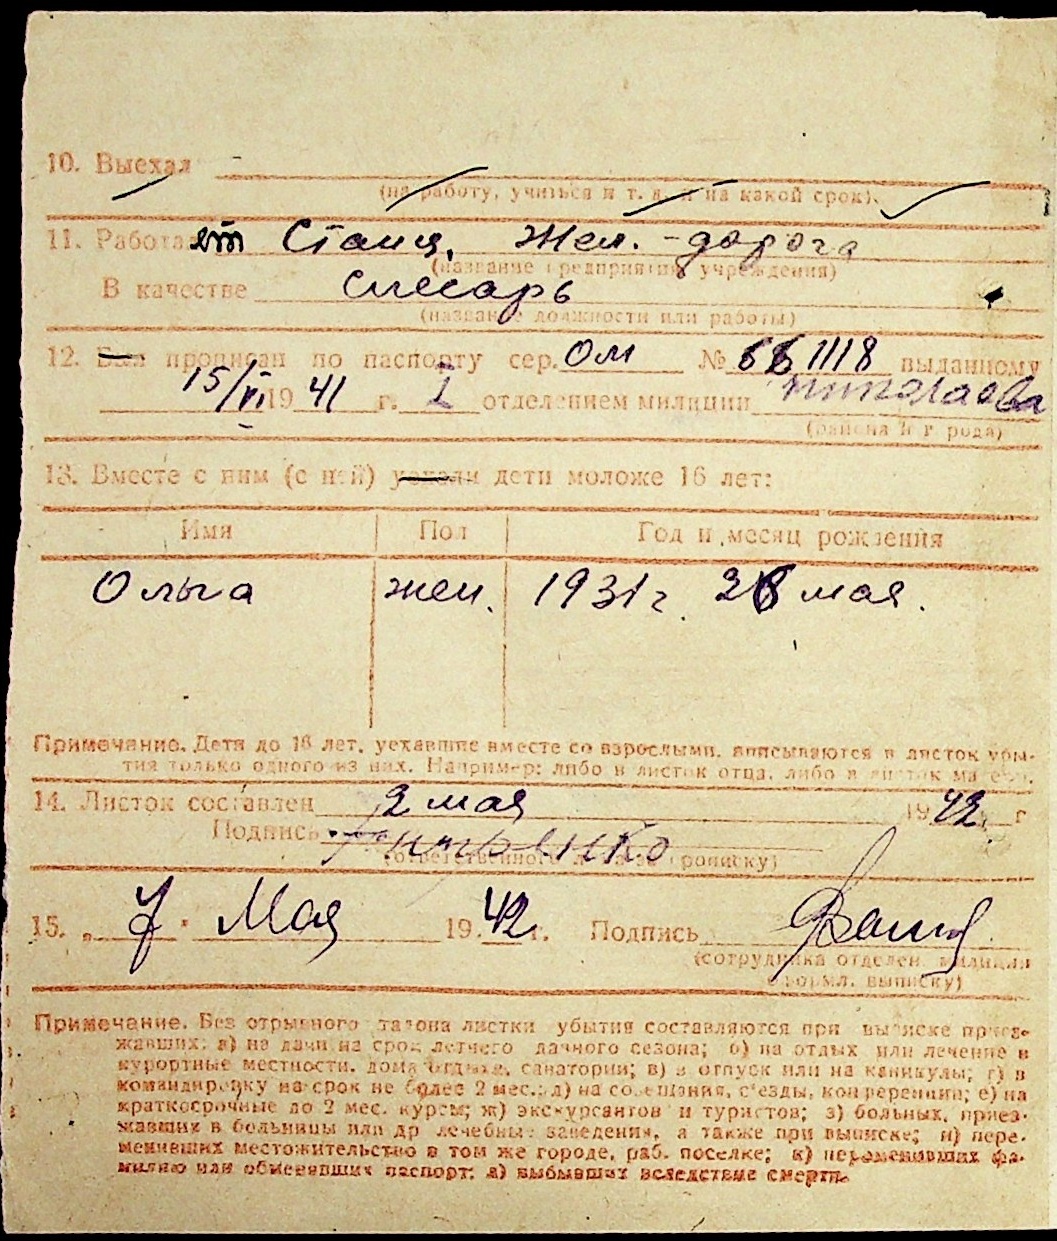 10. Выехал -
(на работу, учиться и т. д. и на какой срок).
11. Работает Станц. Жел. - дорога
(название предприятия, учреждения)
В качестве слесарь
(название должности или работы)
12. Был прописан по паспорту сер. ОМ № 661118 выданному
15/VI 1941 г. I отделением милиции Николаева
(района и города)
13. Вместе с ним (с ней) уехали дети моложе 16 лет:
Имя Пол Год и месяц рождения
Ольга жен. 1931 г. 26 мая.
Примечание. Дети до 16 лет, уехавшие вместе со взрослыми, вписываются в листок убы-
тия только одного из них. Например: либо в листок отца, либо в листок матери.
14. Листок составлен 2 мая 1942 г
Подпись
(ответственного лица за прописку)
15. „ 7 " Мая 1942 г. Подпись
(сотрудника отделен. милиции
оформл. выписку)
Примечание. Без отрывного талона листки убытия составляются при выписке приез-
жавших: а) на дачи на срок летнего дачного сезона; б) на отдых или лечение в
курортные местности, дома отдыха, санатории; в) в отпуск или на каникулы; г) в
командировку на срок не более 2 мес.; д) на совещания, с'езды, конференции; е) на
краткосрочные до 2 мес. курсы; ж) экскурсантов и туристов; з) больных, приез-
жавших в больницы или др лечебные заведения, а также при выписке; и) пере-
менивших местожительство в том же городе, раб. поселке; к) переменивших фа-
милию или обменявших паспорт; л) выбывших вследствие смерти.